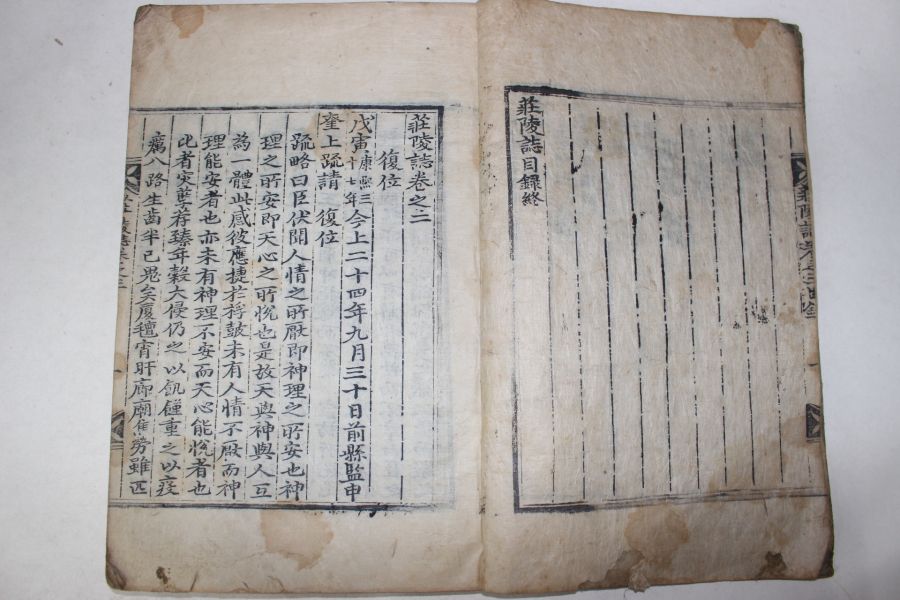 莊陵誌目錄終
莊陵誌卷之三
復位
戊寅康熙三十七年今上二十四年九月三十日前縣監申
奎上疏請 復位
疏略曰臣伏聞人情之所厭即神理之所安也神
理之所安即天心之所悅也是故天與神與人互
為一體此感彼應捷於桴鼓未有人情不厭而神
理能安者也亦未有神理不安而天心能悅者也
比者灾孼荐臻年穀大侵仍之以飢饉重之以疫
癘八路生齒半已鬼矣廈氊宵旰廊廟焦勞雖匹